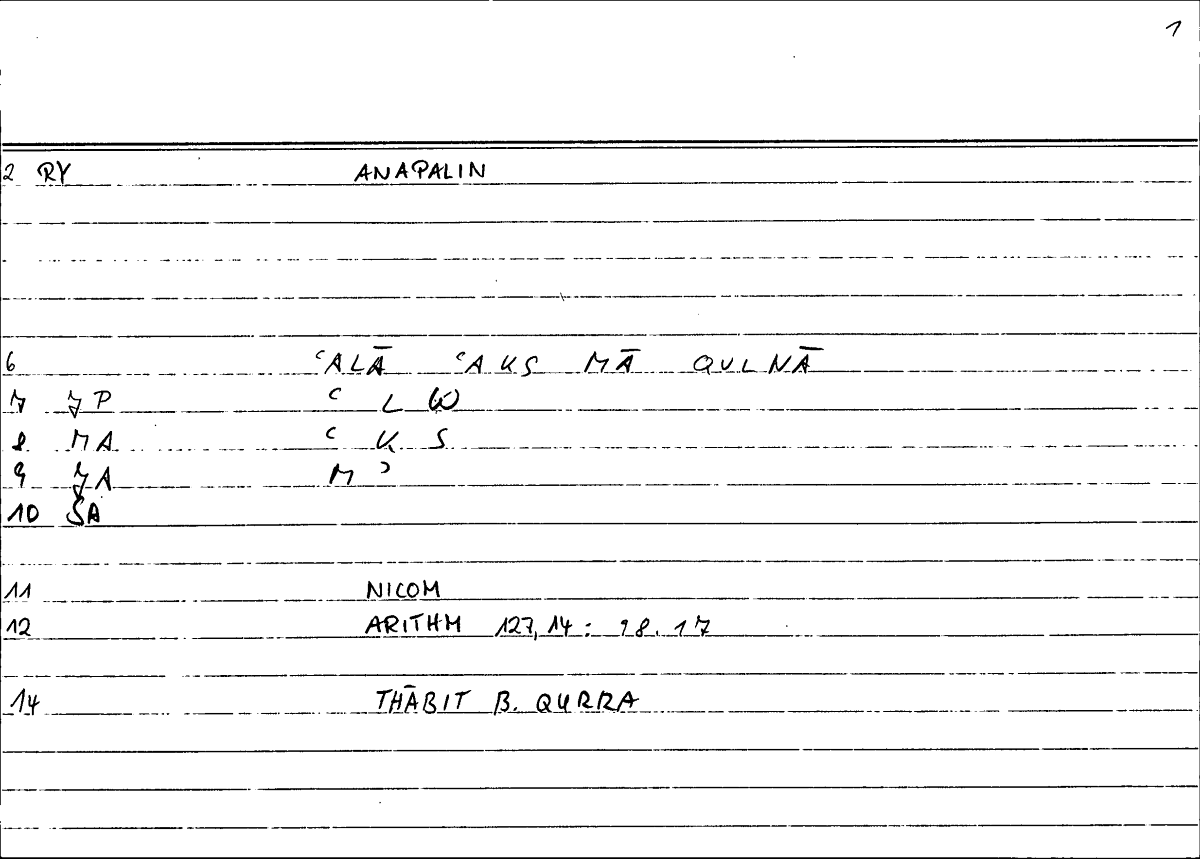 1
2 RY ANAPALIN
6 ʿALĀ ʿAKS MĀ QULNĀ
7 JP ʿ L W
8 MA ʿ K S
9 JA M ʾ
10 ŠA
11 NICOM
12 ARITHM 127,14 : 98.17
14 THĀBIT B. QURRA